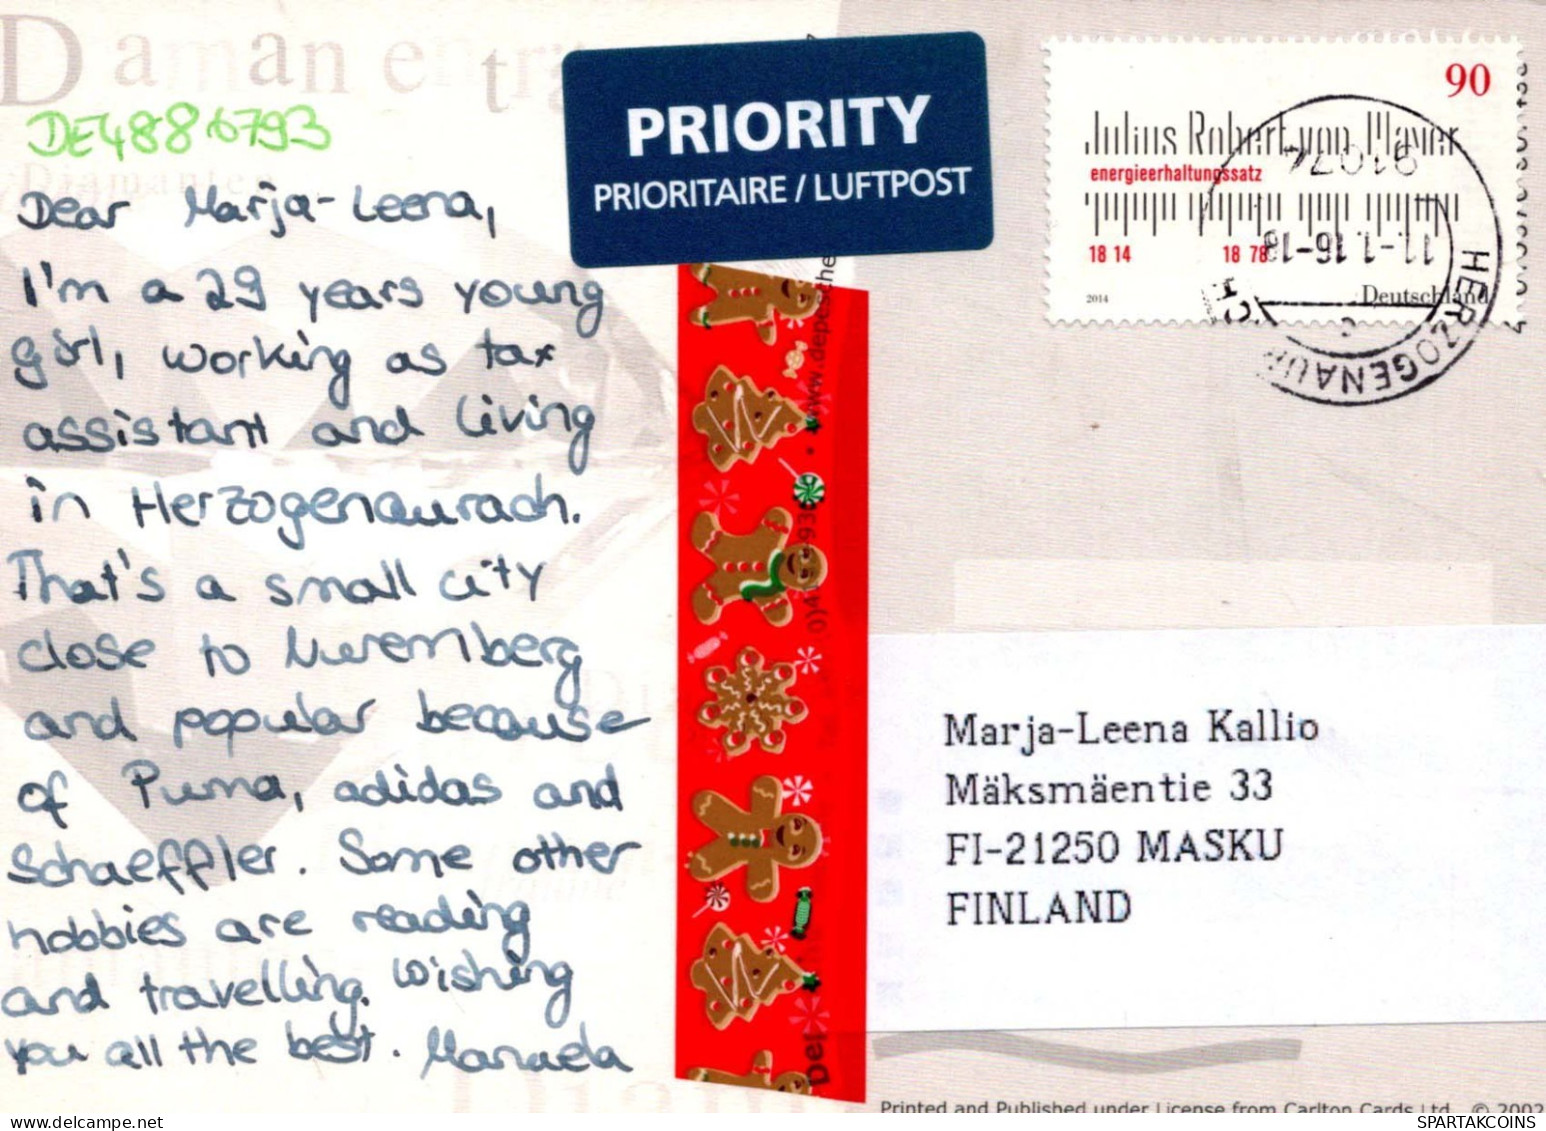 Daman
DE4886793
Diamanten
Dear Marja-Leena,
I'm a 29 years young
girl, working as tax
assistant and living
in Herzogenaurach.
That's a small city
close to Nuremberg
and popular because
of Puma, adidas and
Schaeffler. Some other
hobbies are reading
and travelling. Wishing
you all the best. Manuela
PRIORITY
PRIORITAIRE / LUFTPOST
90
Julius Robert von Mayer
energieerhaltungssatz
18 14
18 78
2014
Deutschland
91074
11.-1.16-18
HERZOGENAUR
Marja-Leena Kallio
Mäksmäentie 33
FI-21250 MASKU
FINLAND
Printed and Published under License from Carlton Cards Ltd. © 2002
www.delcampe.net
SPARTAKCOINS